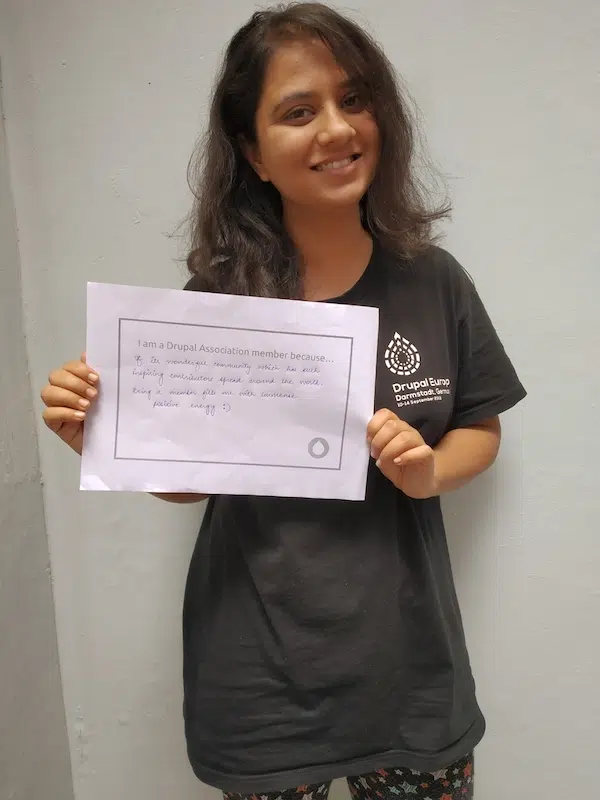 I am a Drupal Association member because...
Of its wonderful community which has such
inspiring contributors spread around the world.
Being a member fills me with immense
positive energy :)
Drupal Europ
Darmstadt, Germa
10-14 September 2018